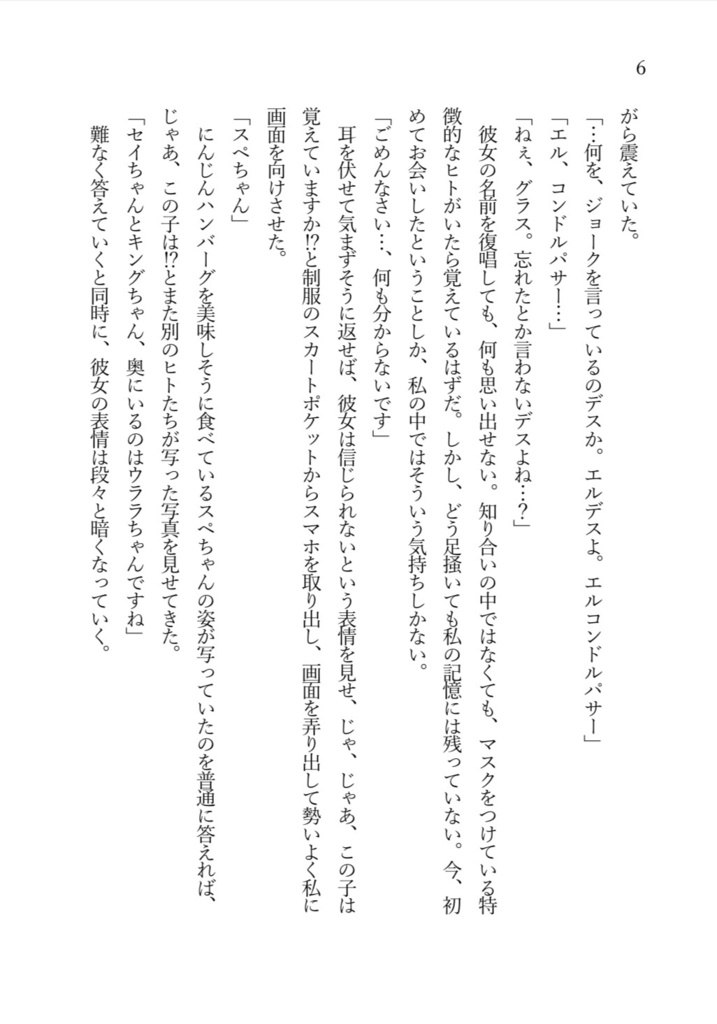 6
がら震えていた。
「…何を、ジョークを言っているのデスか。エルデスよ。エルコンドルパサー」
「エル、コンドルパサー…」
「ねぇ、グラス。忘れたとか言わないデスよね…？」
彼女の名前を復唱しても、何も思い出せない。知り合いの中ではなくても、マスクをつけている特
徴的なヒトがいたら覚えているはずだ。しかし、どう足掻いても私の記憶には残っていない。今、初
めてお会いしたということしか、私の中ではそういう気持ちしかない。
「ごめんなさい…、何も分からないです」
耳を伏せて気まずそうに返せば、彼女は信じられないという表情を見せ、じゃ、じゃあ、この子は
覚えていますか⁉と制服のスカートポケットからスマホを取り出し、画面を弄り出して勢いよく私に
画面を向けさせた。
「スペちゃん」
にんじんハンバーグを美味しそうに食べているスペちゃんの姿が写っていたのを普通に答えれば、
じゃあ、この子は⁉とまた別のヒトたちが写った写真を見せてきた。
「セイちゃんとキングちゃん、奥にいるのはウララちゃんですね」
難なく答えていくと同時に、彼女の表情は段々と暗くなっていく。